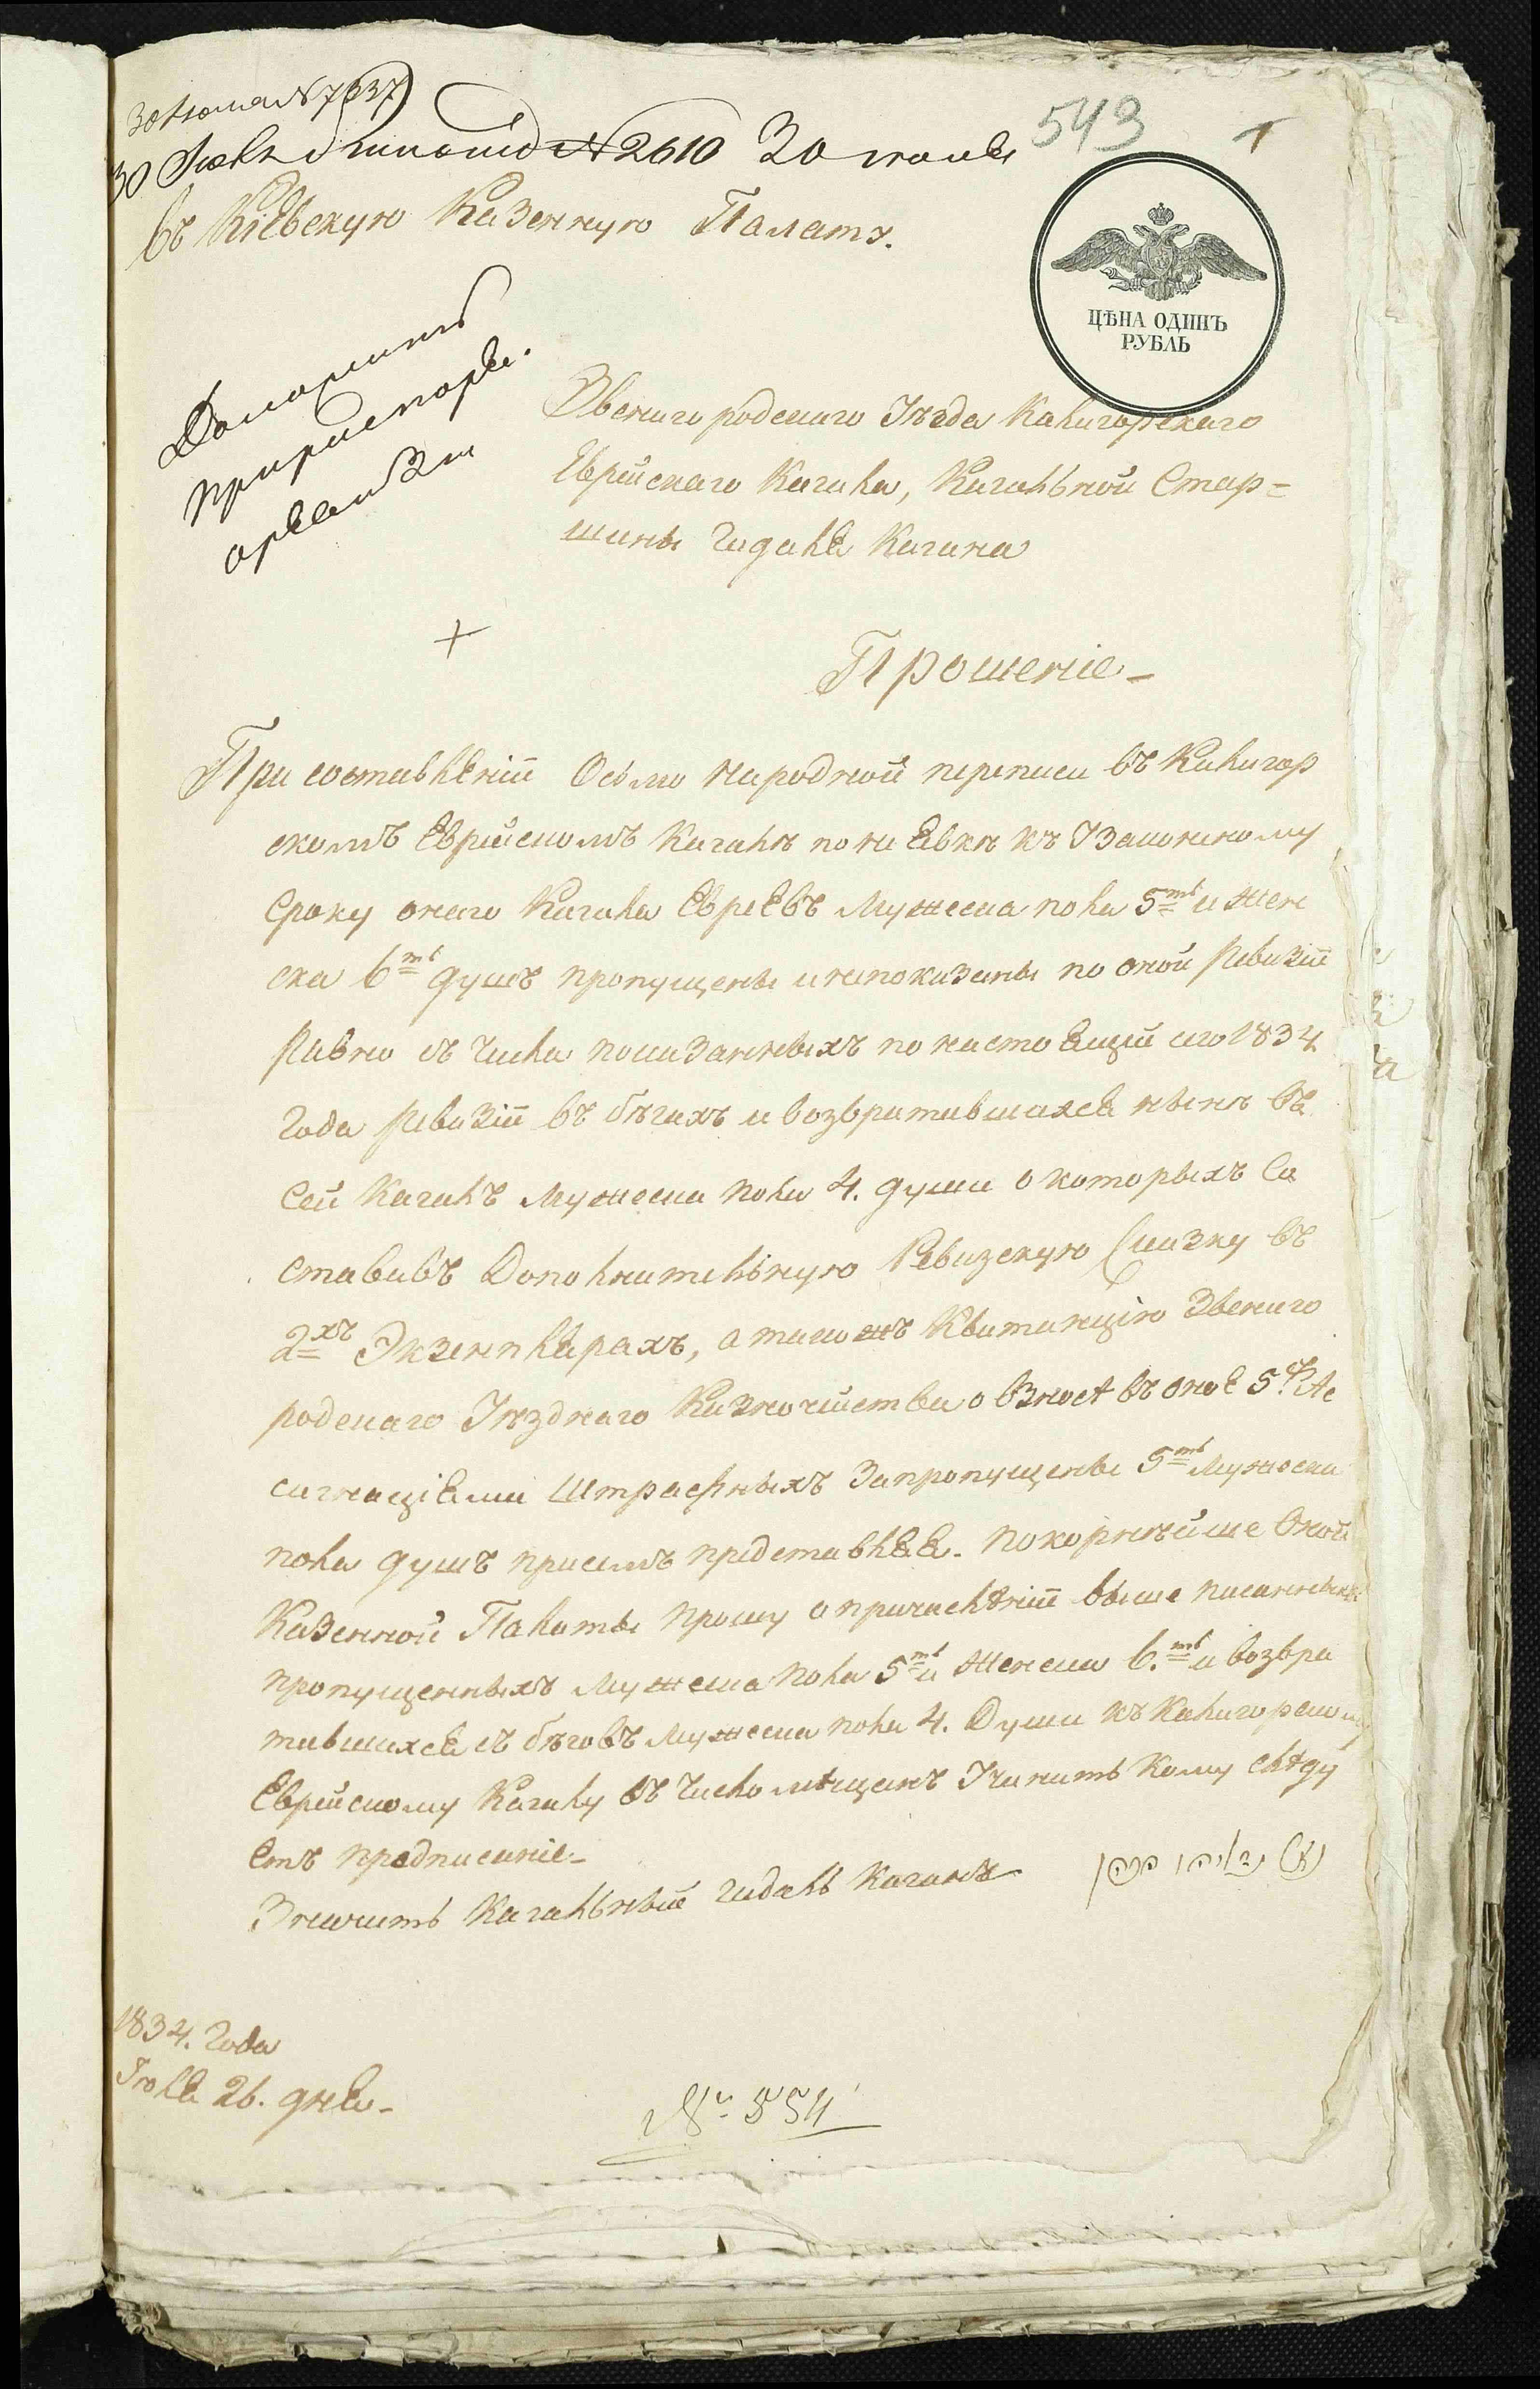 30 Июля № 7637
30 Июля № 2610 30 июля
543
въ Кіевскую Казенную Палату.
ЦѢНА ОДИНЪ
РУБЛЬ
Доложить
при
Звенигородскаго Уѣзда Калигорскаго
Еврейскаго Кагала, Кагальной Стар=
шины Гидаля Кагана
Прошеніе
При составленіи Осьмо народной переписи въ Калигор
скомъ Еврейскомъ Кагалѣ по не явкѣ къ Узаконеному
Сроку онаго Кагала Евреевъ Мужеска пола 5ть и Жен
ска 6ть душъ пропущены и непоказаны по оной Ревизіи
Равно съ Числа показанныхъ по настоящій сего 1834
Года Ревизіи въ бѣгахъ и возвратившихся нынѣ въ
Сей Кагалъ Мужеска пола 4. души о которыхъ Со
ставивъ Дополнительную Ревизскую Сказку въ
2хъ Экземплярахъ, а такожъ Квитанцію Звениго
родскаго Уѣзднаго Казночейства о взносѣ въ оное 5. Ас
сигнаціями Штрафныхъ За пропущены 5ть Мужеска
пола душъ присемъ представляя. покорнѣйше Оной
Казенной Палаты прошу о причисленіи выше писанныхъ
пропущенныхъ Мужеска пола 5ть и Женска 6.ть и возвра
тившихся съ бѣговъ Мужеска пола 4. Души къ Калигорскому
Еврейскому Кагалу въ Число мѣщанъ Учинить Кому слѣду
етъ предписаніе
Значитъ Кагальный Гидаль Каганъ
1834. Года
Июля 26. дня
№ 554